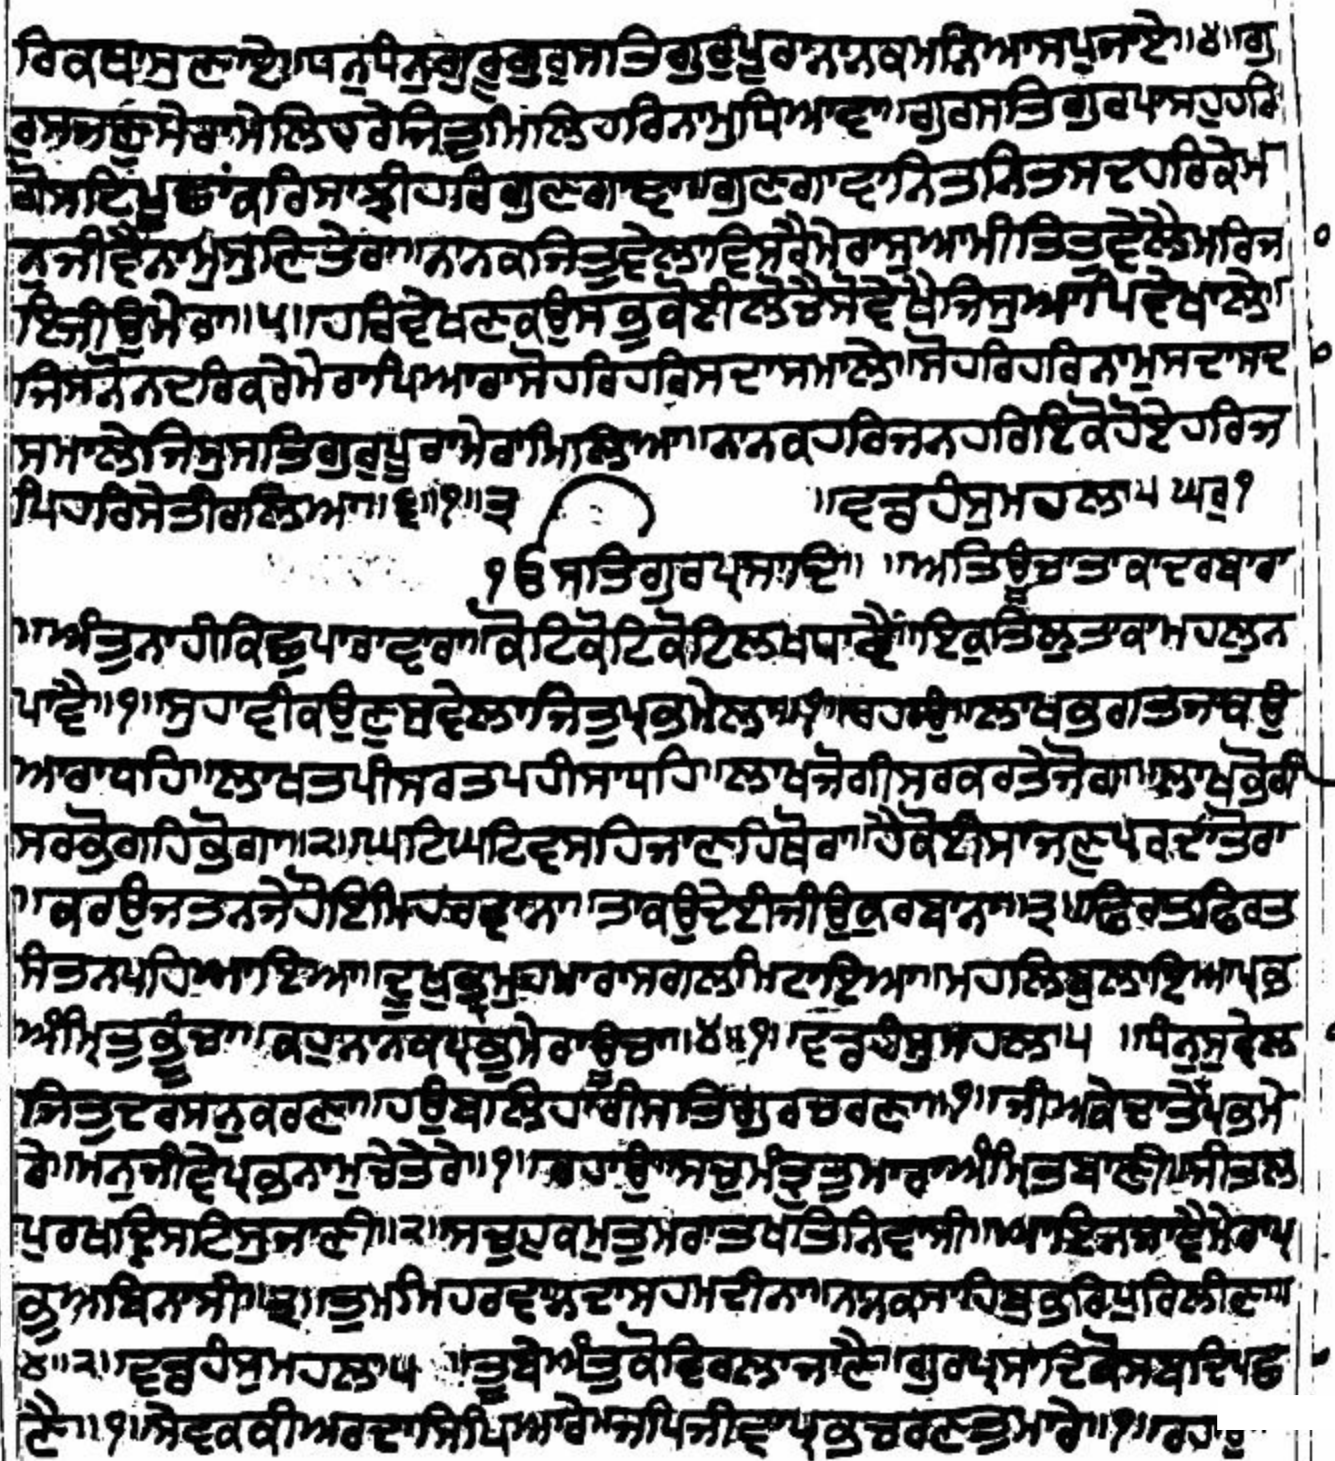 ਰਿਕਥਾਸੁਣਾਏ॥ਧਨੁਧੰਨੁਗੁਰੂਗੁਰੁਸਤਿਗੁਰੁਪੂਰਾਨਾਨਕਮਨਿਆਸਪੁਜਾਏ॥੪॥ਗੁ
ਰੁਸਜਣੁਮੇਰਾਮੇਲਿਹਰੇਜਿਤੁਮਿਲਿਹਰਿਨਾਮੁਧਿਆਵਾ॥ਗੁਰਸਤਿਗੁਰਪਾਸਹੁਹਰਿ
ਗੋਸਟਿਪੂਛਾਂਕਰਿਸਾਂਝੀਹਰਿਗੁਣਗਾਵਾ॥ਗੁਣਗਾਵਾਨਿਤਨਿਤਸਦਹਰਿਕੇਮ
ਨੁਜੀਵੈਨਾਮੁਸੁਣਿਤੇਰਾ॥ਨਾਨਕਜਿਤੁਵੇਲਾਵਿਸਰੈਮੇਰਾਸੁਆਮੀਤਿਤੁਵੇਲੈਮਰਿਜ
ਾਇਜੀਉਮੇਰਾ॥੫॥ਹਰਿਵੇਖਣਕਉਸਭੁਕੋਈਲੋਚੈਸੋਵੇਖੈਜਿਸੁਆਪਿਵੇਖਾਲੇ॥
ਜਿਸਨੋਨਦਰਿਕਰੇਮੇਰਾਪਿਆਰਾਸੋਹਰਿਹਰਿਸਦਾਸਮਾਲੇ॥ਸੋਹਰਿਹਰਿਨਾਮੁਸਦਾਸਦ
ਾਸਮਾਲੇਜਿਸੁਸਤਿਗੁਰੁਪੂਰਾਮੇਰਾਮਿਲਿਆ॥ਨਾਨਕਹਰਿਜਨਹਰਿਇਕੋਹੋਏਹਰਿਜ
ਪਿਹਰਿਸੇਤੀਰਲਿਆ॥੬॥੧॥੩ ॥ਵਡਹੰਸੁਮਹਲਾ੫ਘਰੁ੧
੧ਓਸਤਿਗੁਰਪ੍ਰਸਾਦਿ॥ ॥ਅਤਿਊਚਾਤਾਕਾਦਰਬਾਰਾ
॥ਅੰਤੁਨਾਹੀਕਿਛੁਪਾਰਾਵਾਰਾ॥ਕੋਟਿਕੋਟਿਕੋਟਿਲਖਧਾਵੈ॥ਇਕੁਤਿਲੁਤਾਕਾਮਹਲੁਨ
ਪਾਵੈ॥੧॥ਸੁਹਾਵੀਕਉਣੁਸੁਵੇਲਾਜਿਤੁਪ੍ਰਭਮੇਲਾ॥੧॥ਰਹਾਉ॥ਲਾਖਭਗਤਜਾਕਉ
ਆਰਾਧਹਿ॥ਲਾਖਤਪੀਸਰਤਪਹੀਸਾਧਹਿ॥ਲਾਖਜੋਗੀਸਰਕਰਤੇਜੋਗਾ॥ਲਾਖਭੋਗੀ
ਸਰਭੋਗਹਿਭੋਗਾ॥੨॥ਘਟਿਘਟਿਵਸਹਿਜਾਣਹਿਥੋਰਾ॥ਹੈਕੋਈਸਾਜਣੁਪਰਦਾਤੋਰਾ
॥ਕਰਉਜਤਨਜੇਹੋਇਮਿਹਰਵਾਨਾ॥ਤਾਕਉਦੇਈਜੀਉਕੁਰਬਾਨਾ॥੩॥ਫਿਰਤਫਿਰਤ
ਸੰਤਨਪਹਿਆਇਆ॥ਦੂਖਭ੍ਰਮੁਹਮਾਰਾਸਗਲਮਿਟਾਇਆ॥ਮਹਲਿਬੁਲਾਇਆਪ੍ਰਭ
ਅੰਮ੍ਰਿਤੁਭੂੰਚਾ॥ਕਹੁਨਾਨਕਪ੍ਰਭੁਮੇਰਾਊਚਾ॥੪॥੧॥ਵਡਹੰਸੁਮਹਲਾ੫ ॥ਧੰਨੁਸੁਵੇਲਾ
ਜਿਤੁਦਰਸਨੁਕਰਣਾ॥ਹਉਬਲਿਹਾਰੀਸਤਿਗੁਰਚਰਣਾ॥੧॥ਜੀਅਕੇਦਾਤੇਪ੍ਰਭਮੇ
ਰੇ॥ਮਨੁਜੀਵੈਪ੍ਰਭਨਾਮੁਚਿਤੇਰੇ॥੧॥ਰਹਾਉ॥ਸਚੁਮੰਤ੍ਰੁਤੁਮਾਰਾਅੰਮ੍ਰਿਤਬਾਣੀ॥ਸੀਤਲ
ਪੁਰਖਦ੍ਰਿਸਟਿਸੁਜਾਣੀ॥੨॥ਸਚੁਹੁਕਮੁਤੁਮਾਰਾਤਖਤਿਨਿਵਾਸੀ॥ਆਇਨਜਾਵੈਮੇਰਾਪ੍ਰ
ਭੁਅਬਿਨਾਸੀ॥੩॥ਤੁਮਮਿਹਰਵਾਨਦਾਸਹਮਦੀਨਾ॥ਨਾਨਕਸਾਹਿਬੁਭਰਿਪੁਰਿਲੀਣਾ॥
੪॥੨॥ਵਡਹੰਸੁਮਹਲਾ੫ ॥ਤੂਬੇਅੰਤੁਕੋਵਿਰਲਾਜਾਣੈ॥ਗੁਰਪ੍ਰਸਾਦਿਕੋਸਬਦਿਪਛਾ
ਣੈ॥੧॥ਸੇਵਕਕੀਅਰਦਾਸਿਪਿਆਰੇ॥ਜਪਿਜੀਵਾਪ੍ਰਭਚਰਣਤੁਮਾਰੇ॥੧॥ਰਹਾਉ